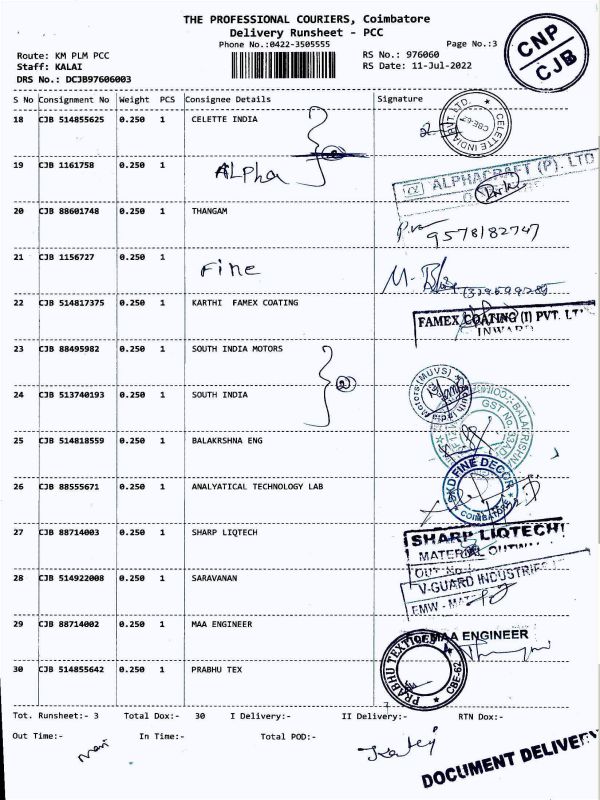 THE PROFESSIONAL COURIERS, Coimbatore
Delivery Runsheet - PCC
Phone No.:0422-3505555
Page No.:3
CNP
CJB
Route: KM PLM PCC
RS No.: 976060
Staff: KALAI
RS Date: 11-Jul-2022
DRS No.: DCJB97606003
S No Consignment No Weight PCS Consignee Details Signature
18 CJB 514855625 0.250 1 CELETTE INDIA
CELETTE INDIA PVT. LTD.
CBE-62
19 CJB 1161758 0.250 1 ALPha
ALPHACRAFT (P). LTD
20 CJB 88601748 0.250 1 THANGAM
9578182747
21 CJB 1156727 0.250 1 Fine
22 CJB 514817375 0.250 1 KARTHI FAMEX COATING
FAMEX COATING (I) PVT. LT
INWARD
23 CJB 88495982 0.250 1 SOUTH INDIA MOTORS
24 CJB 513740193 0.250 1 SOUTH INDIA
South India Motors (MUVS)
25 CJB 514818559 0.250 1 BALAKRSHNA ENG
26 CJB 88555671 0.250 1 ANALYATICAL TECHNOLOGY LAB
SKD FINE DECOR
COIMBATORE
27 CJB 88714003 0.250 1 SHARP LIQTECH
SHARP LIQTECH
MATERIAL OUTW
OUT No
28 CJB 514922008 0.250 1 SARAVANAN
V-GUARD INDUSTRIES
EMW - MAT
29 CJB 88714002 0.250 1 MAA ENGINEER
MAA ENGINEER
30 CJB 514855642 0.250 1 PRABHU TEX
PRABHU TEXTILES
CBE-62
Tot. Runsheet:- 3 Total Dox:- 30 I Delivery:- II Delivery:- RTN Dox:-
Out Time:- In Time:- Total POD:-
DOCUMENT DELIVERY